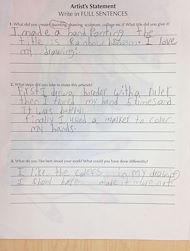 Artist's Statement
Write in FULL SENTENCES
1. What did you create (painting, drawing, sculpture, collage etc.)? What title did you give it?
I made a hand Painting the
title is Rainbow I love
my drawing.
2. What steps did you take to make this artwork?
First drawing border with a ruler
then I traced my hand 5 times and
It was
finally I used a marker to color
my hands.
3. What do you like best about your work? What could you have done differently?
I like the colers in my drawing
I make it more art.